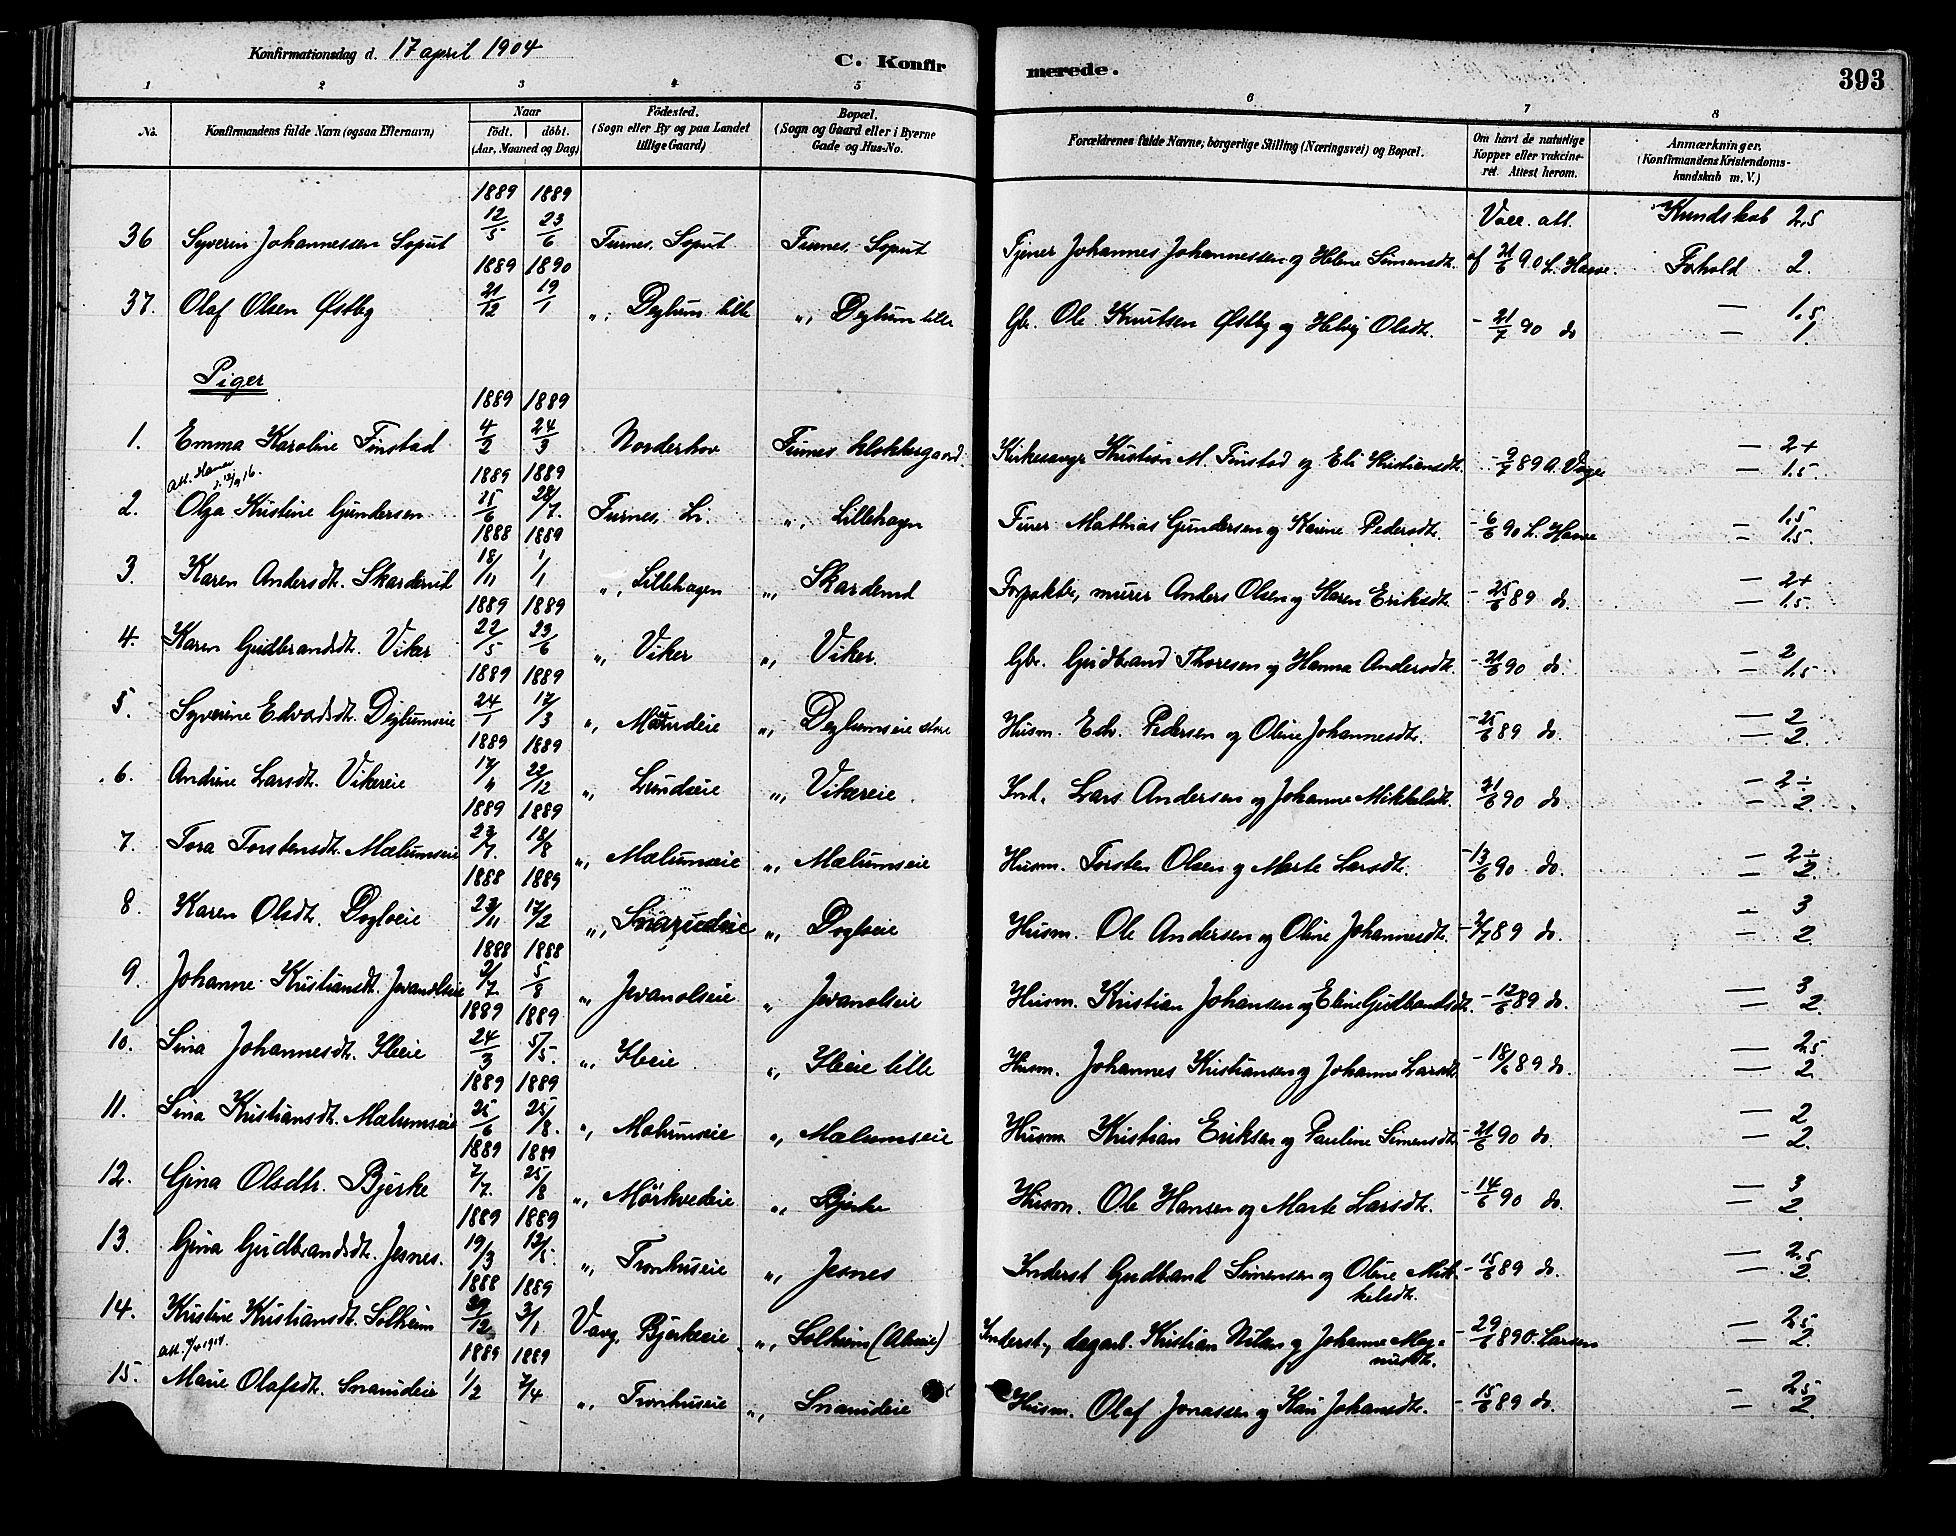 Konfirmationsdag d. 17 april 1904
C. Konfirmerede.
393
1 2 3 4 5 6 7 8
No. Konfirmandens fulde Navn (ogsaa Efternavn) Naar födt. döbt. (Aar, Maaned og Dag) Födested. (Sogn eller By og paa Landet tillige Gaard) Bopæl. (Sogn og Gaard eller i Byerne Gade og Hus-No. Forældrenes fulde Navne, borgerlige Stilling (Næringsvei) og Bopæl. Om havt de naturlige Kopper eller vakcineret. Attest herom. Anmærkninger. (Konfirmandens Kristendomskundskab m. V.)
36 Syverin Johannessen Soput 1889 12/5 1889 23/6 Furnes, Soput Furnes, Soput Tjener Johannes Johannessen og Helene Simensdt. Vacc. att. af 21/6 90 L. Hasse. Kundskab 2,5 Forhold 2.
37. Olaf Olsen Østby 1889 21/12 1890 19/1 „ Deglum lille „ Deglum lille Gbr. Ole Knutsen Østby og Helvig Olsdt. - 21/7 90 do — 1.5 — 1
Piger
1. Emma Karoline Finstad 1889 4/2 1889 24/3 Norderhov Furnes klokkergaard. Kirkesanger Kristian M. Finstad og Eli Kristiansdt. - 9/7 89 A. Vage — 2+ — 1.5
2. Olga Kristine Gundersen 1889 25/6 1889 28/7. Furnes, Li. „ Lillehagen Furer Mathias Gundersen og Karine Pedersdt. - 6/6 90 L. Hasse — 1.5 — 1.5.
3. Karen Andersdt. Skarderud 1888 18/11 1889 1/1 „ Lillehagen „ Skarderud Forpakter, murer Anders Olsen og Karen Eriksdt. - 25/6 89 do. — 2+ — 1.5.
4. Karen Gudbrandsdt. Viker 1889 22/5 1889 23/6 „ Viker „ Viker. Gbr. Gudbrand Thoresen og Hanna Andersdt. - 21/6 90 do. — 2 — 1.5
5. Syverine Edvardsdt. Deglumseie 1889 24/1 1889 17/3 „ „ Deglumseie store Husm. Edv. Pedersen og Oline Johannesdt. - 25/6 89 do. — 2 — 2.
6. Andrine Larsdt. Vikereie 1889 17/11 1889 22/12 „ Lundseie „ Vikereie Ind. Lars Andersen og Johanne Mikkelsdt. 21/6 90 do — 2÷ — 2.
7. Tora Torstensdt. Mælumseie 1889 23/7. 1889 18/8 „ Mælumseie „ Mælumseie Husm. Torsten Olsen og Marte Larsdt. - 13/6 90 do. — 2÷ — 2.
8. Karen Olsdt. Dogloeie 1888 23/11 1889 17/2 „ Snarudeie „ Dogloeie Husm. Ole Andersen og Oline Johannesdt. - 2/7 89 do. — 3 — 2.
9. Johanne Kristiansdt. Jevanolseie 1888 2/7. 1888 5/8 „ Jevanolseie „ Jevanolseie Husm. Kristian Johansen og Eline Gudbrandsdt. - 12/6 89 do. — 3 — 2.
10. Sina Johannesdt. Ileie 1889 24/3 1889 5/5. „ Ileie „ Ileie lille Husm. Johannes Kristiansen og Johanne Larsdt. - 18/6 89 do. — 2,5 — 2.
11. Sina Kristiansdt. Mælumseie 1889 25/6 1889 25/8. „ Mælumseie „ Mælumseie Husm. Kristian Eriksen og Pauline Simensdt. - 21/6 90 do. — 2 — 2.
12. Gina Olsdtr. Bjerke 1889 2/7. 1889 25/8 „ Mörkvedeie „ Bjerke Husm. Ole Hansen og Marte Larsdt. - 14/6 90 do. — 3 — 2.
13. Gina Gudbrandsdt. Jesnes. 1889 19/3 1889 12/5. „ Tronhuseie „ Jesnes Inderst Gudbrand Simensen og Oline Mikkelsdt. - 15/6 89 do. — 2.5 — 2.
14. Kristine Kristiansdt. Solheim 1888 29/12 1889 3/1 Vang, Bjerkeeie „ Solheim Inderst, dagarb. Kristian Nilsen og Johanne Magnusdt. - 29/6 89 O. Larsen — 2,5 — 2.
15. Marie Olafsdt. Snarudeie 1889 1/2 1889 7/4 „ Tronhuseie „ Snarudeie Husm. Olaf Jonassen og Kari Johansdt. - 15/6 89 do. — 2,5 — 2.